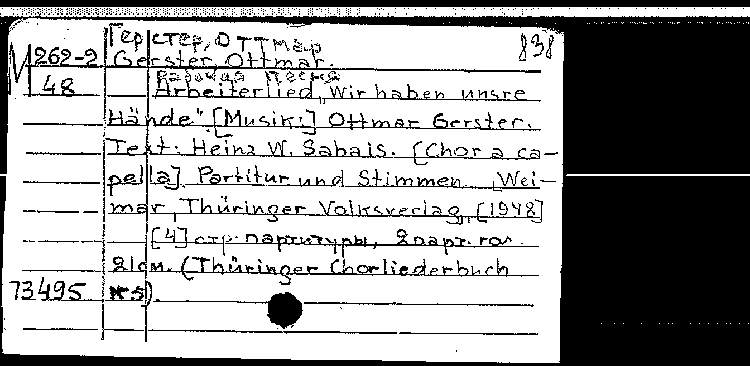 Герстер, Оттмар 838
М 262-2 Gerster, Ottmar.
Рабочая песня
48 Arbeiterlied „Wir haben unsre
Hände". [Musik:] Ottmar Gerster.
Text: Heinz W. Sabais. [Chor a ca-
pella]. Partitur und Stimmen. Wei-
mar, Thüringer Volksverlag, [1948]
[4] стр. партитуры, 2 парт. гол.
21 см. (Thüringer Chorliederbuch
73495 Nr 5).